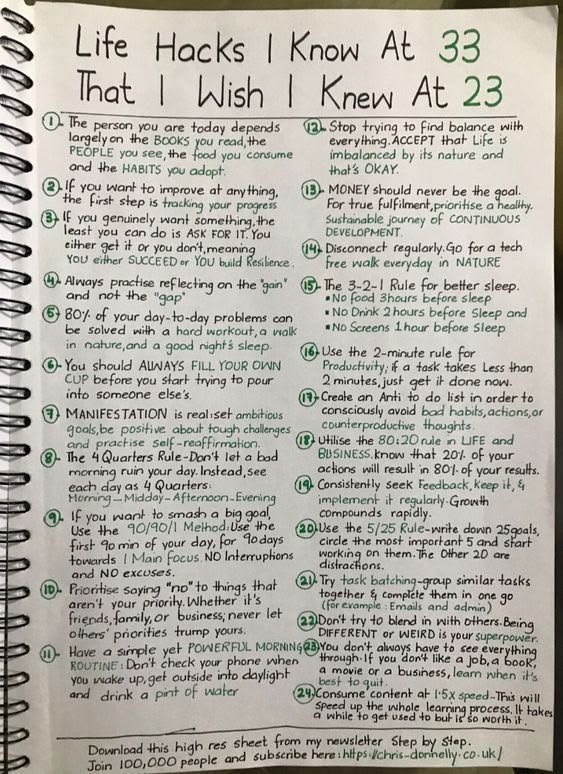 Life Hacks I Know At 33
That I Wish I Knew At 23
1. The person you are today depends
largely on the BOOKS you read, the
PEOPLE you see, the food you consume
and the HABITS you adopt.
2. If you want to improve at anything,
the first step is tracking your progress
3. If you genuinely want something, the
least you can do is ASK FOR IT. You
either get it or you don't, meaning
YOU either SUCCEED or YOU build Resilience.
4. Always practise reflecting on the "gain"
and not the "gap"
5. 80% of your day-to-day problems can
be solved with a hard workout, a walk
in nature, and a good night's sleep.
6. You should ALWAYS FILL YOUR OWN
CUP before you start trying to pour
into someone else's.
7. MANIFESTATION is real: set ambitious
goals, be positive about tough challenges
and practise self-reaffirmation.
8. The 4 Quarters Rule- Don't let a bad
morning ruin your day. Instead, see
each day as 4 Quarters:
Morning - Midday - Afternoon - Evening
9. If you want to smash a big goal,
Use the 90/90/1 Method: Use the
first 90 min of your day, for 90 days
towards 1 Main focus. NO Interruptions
and NO excuses.
10. Prioritise saying "no" to things that
aren't your priority. Whether it's
friends, family, or business; never let
others' priorities trump yours.
11. Have a simple yet POWERFUL MORNING
ROUTINE: Don't check your phone when
you wake up, get outside into daylight
and drink a pint of water
12. Stop trying to find balance with
everything. ACCEPT that Life is
imbalanced by its nature and
that's OKAY.
13. MONEY should never be the goal.
For true fulfilment, prioritise a healthy,
Sustainable journey of CONTINUOUS
DEVELOPMENT.
14. Disconnect regularly. Go for a tech
free walk everyday in NATURE
15. The 3-2-1 Rule for better sleep.
▪ No food 3 hours before sleep
▪ No Drink 2 hours before Sleep and
▪ No Screens 1 hour before Sleep
16. Use the 2-minute rule for
Productivity; if a task takes Less than
2 minutes, just get it done now.
17. Create an Anti to do list in order to
consciously avoid bad habits, actions, or
counterproductive thoughts.
18. Utilise the 80:20 rule in LIFE and
BUSINESS. know that 20% of your
actions will result in 80% of your results.
19. Consistently seek Feedback, keep it, &
implement it regularly. Growth
compounds rapidly.
20. Use the 5/25 Rule- write down 25 goals,
circle the most important 5 and start
working on them. The Other 20 are
distractions.
21. Try task batching- group similar tasks
together & complete them in one go
(for example: Emails and admin)
22. Don't try to blend in with others. Being
DIFFERENT or WEIRD is your superpower.
23. You don't always have to see everything
through. If you don't like a job, a book,
a movie or a business, learn when it's
best to quit.
24. Consume content at 1.5x speed- This will
speed up the whole learning process. It takes
a while to get used to but is so worth it.
Download this high res sheet from my newsletter Step by Step.
Join 100,000 people and subscribe here: https://chris-donnelly.co.uk/